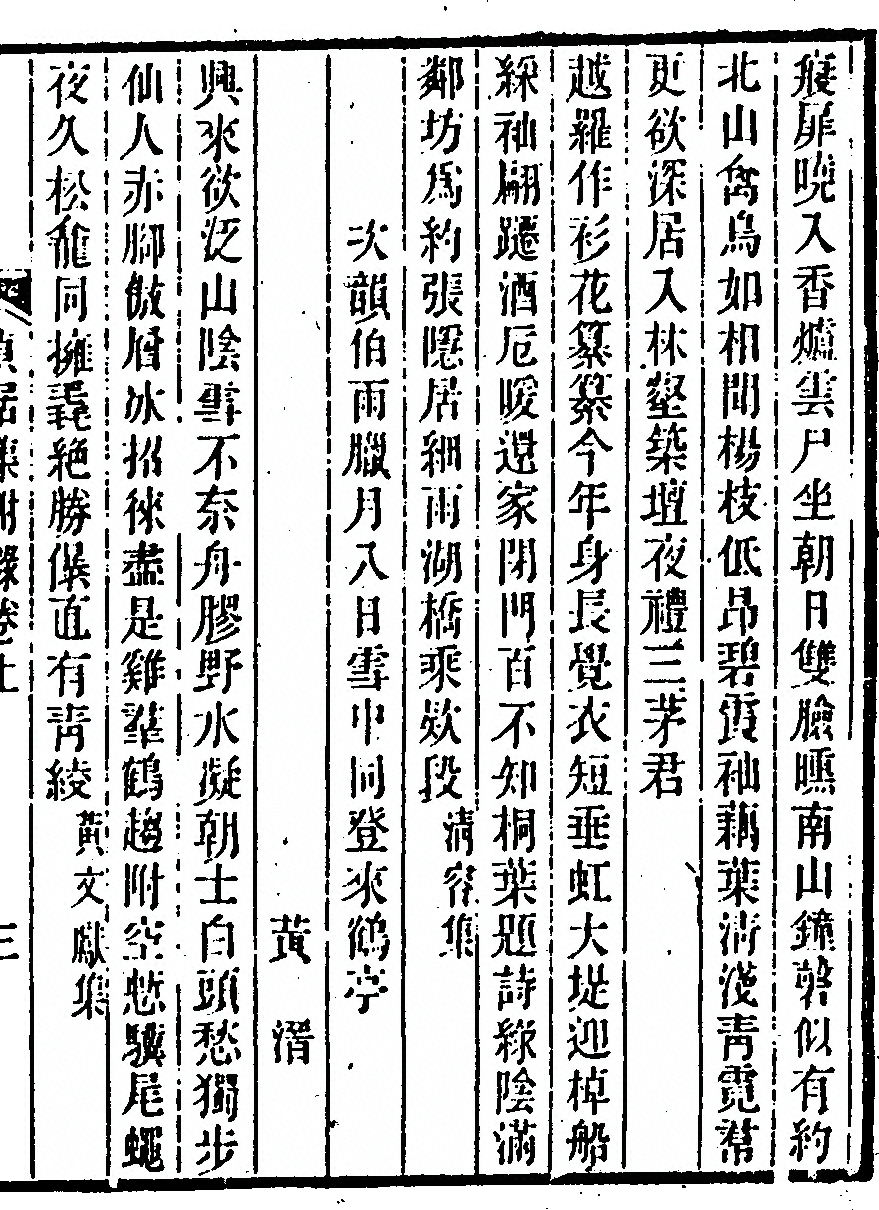 扉晚入香爐雲尸坐朝日雙臉曛南山鐘磬似有約
北山禽鳥如相聞楊枝低昂碧霞袖藕葉清淺青霓裳
更欲深居入林壑築壇夜禮三茅君
越羅作衫花纂纂今年身長覺衣短垂虹大堤迎棹船
綵袖翩躚酒卮暖還家閉門百不知桐葉題詩綠陰滿
鄰坊為約張隱居細雨湖橋乘款段清容集
次韻伯雨臘月八日雪中同登來鶴亭
黃溍
興來欲泛山陰雪不奈舟膠野水凝朝士白頭愁獨步
仙人赤腳傲層冰招徠盡是雞羣鶴趨附空慙驥尾蠅
夜久松龕同擁毳絕勝儤直有青綾黃文獻集
貞居集附錄卷上
三